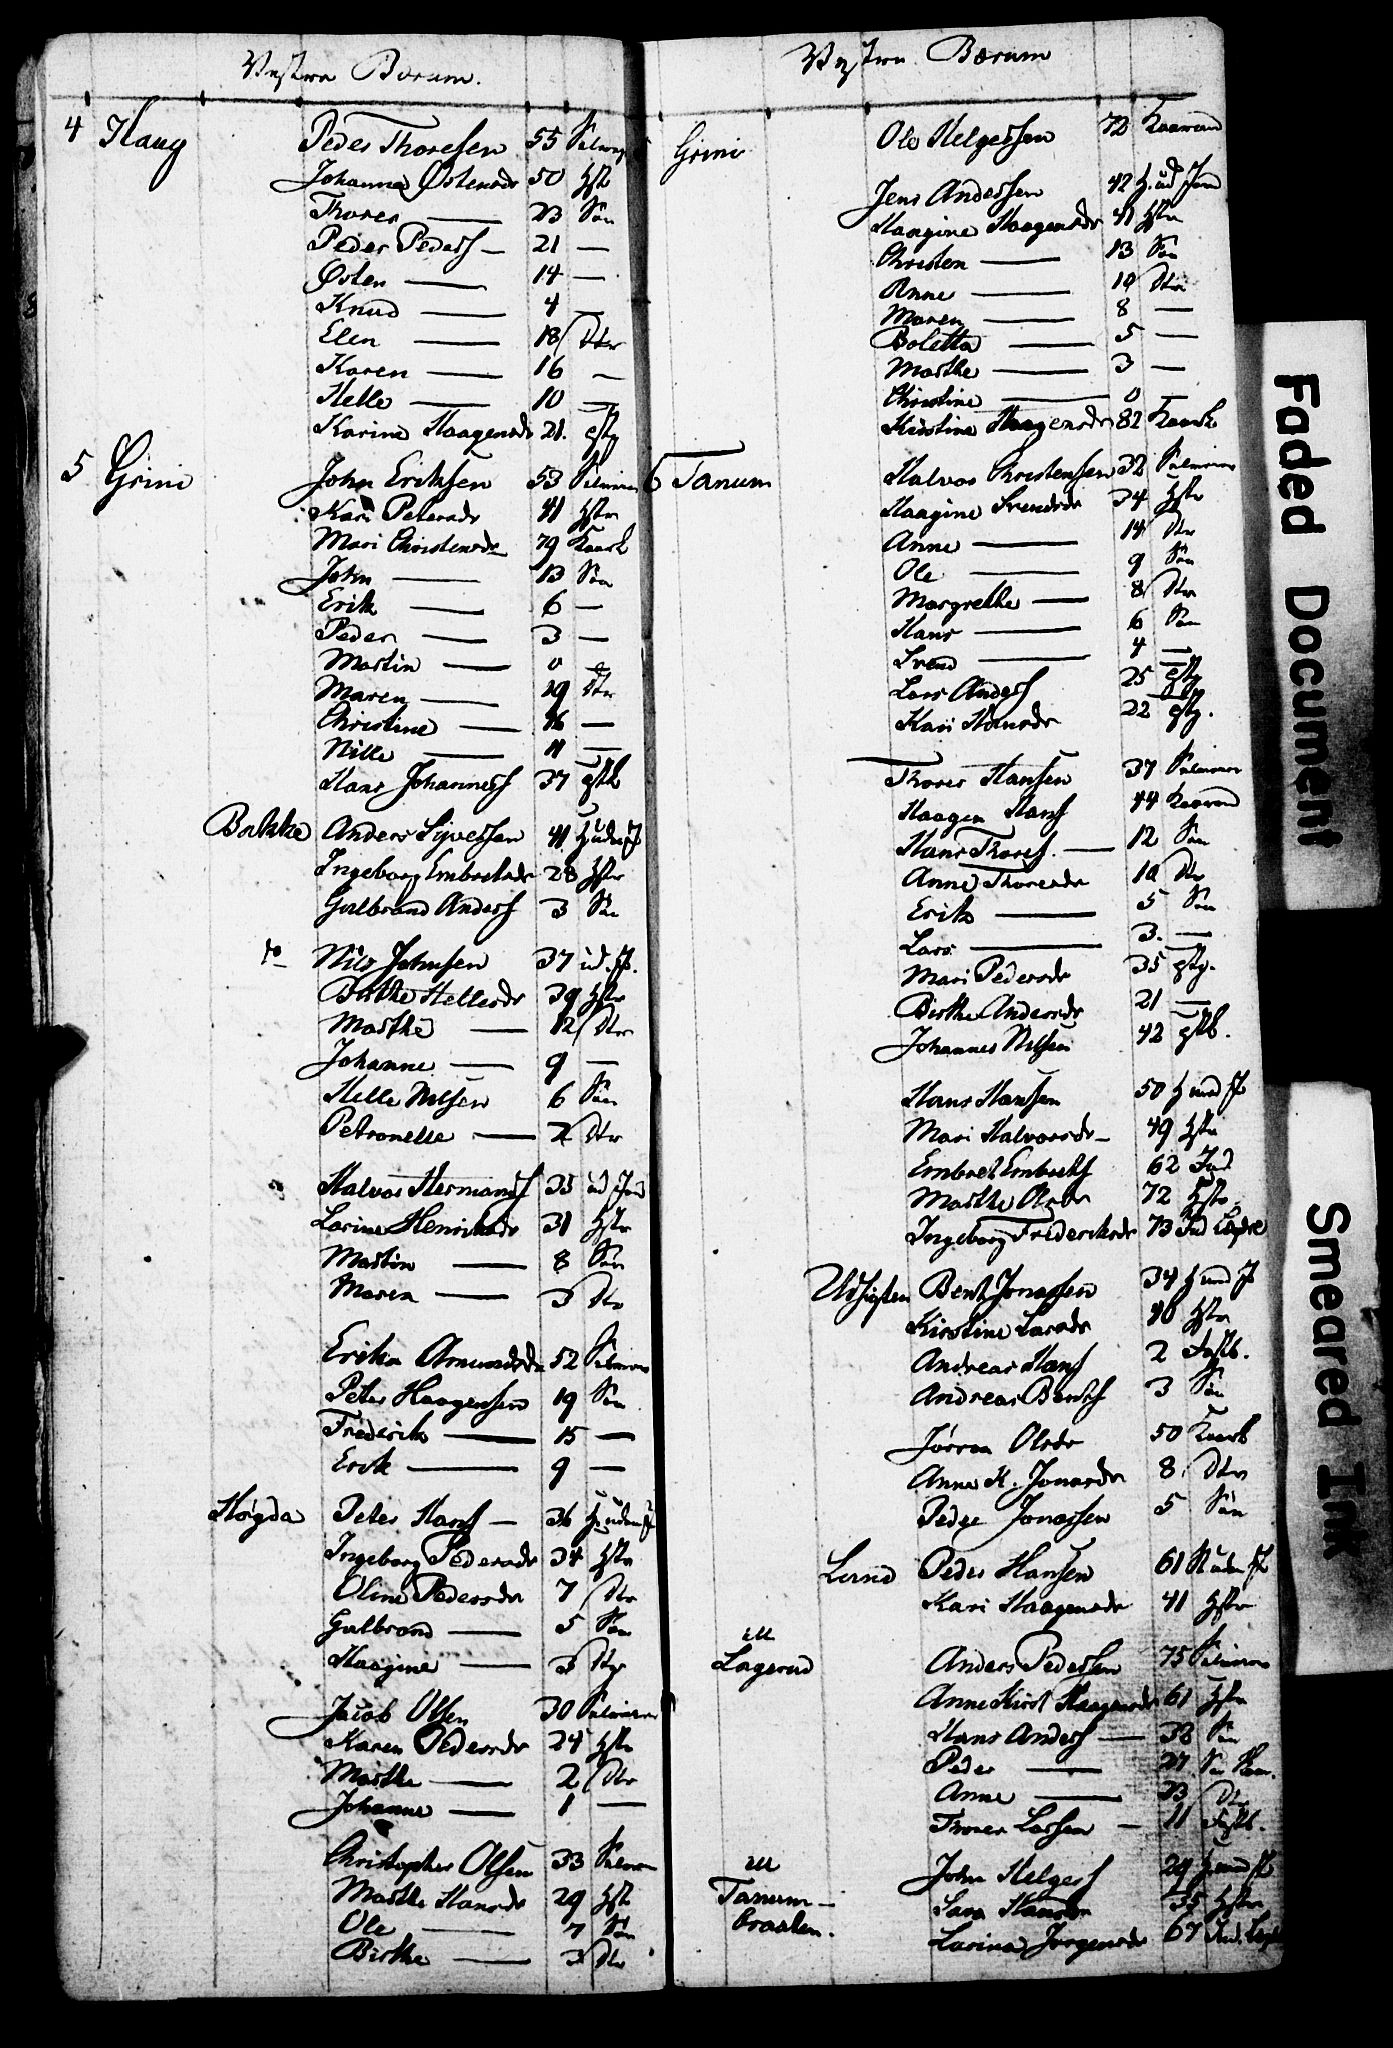 Vestre Bærum.
4 Haug Peder Thoresen 55 Selveier
Johanne Østensdr 50 Hstr
Thorer — 23 Sön
Peder Peders — 21 —
Østen — 14 —
Knud — 4 —
Elen — 18 Dtr
Karen — 16 —
Helle — 10 —
Karine Haagensdr 21. Tstp
5 Grini John Eriksen 53 Selveier
Kari Petersdr 41 Hstr
Mari Christensdr 79 Kaark
John — 13 Sön
Erik — 6 —
Peder — 3 —
Martin — 0 —
Maren — 19 Dtr
Christine — 16 —
Nille — 11 —
Hans Johanness 37 Tstk
Bakke Anders Syversen 41 H. uden J
Ingeborg Embretsdr 28 Hstr
Gulbrand Anders 3 Sön
do Nils Johnsen 37 ud. J.
Birthe Hellesdr 39 Hstr
Marthe — 12 Dtr
Johanne — 9 —
Helle Nilsen 6 Sön
Petronelle — 2 Dtr
Halvor Hermands 35 ud Jord
Larine Henriksdr 31 Hstr
Martin — 8 Sön
Maren — 3 Dtr
Erika Amundsdr 52 Selveier
Peter Haagensen 19 Sön
Frederik — 15 —
Erik — 9 —
Høgda Peter Hans — 36 H. uden J
Ingeborg Pedersdr 34 Hstr
Oline Pedersdr 7 Dtr
Gulbrand — 5 Sön
Haagine — 3 Dtr
Jacob Olsen 30 Selveier
Karen Pedersdr 24 Hstr
Marthe — 2 Dtr
Johanne — 1 —
Christopher Olsen 33 Selveier
Marthe Hansdr 29 Hstr
Ole — 7 Sön
Birthe — 3 Dtr
Vestre Bærum
Grini Ole Helgessen 72 Kaarmand
Jens Anderssen 42 H. ud Jord
Haagine Haagensdr 41 Hstr
Christen — 13 Sön
Anne — 10 Dtr
Maren — 8 —
Boletta — 5 —
Marthe — 3 —
Christine — 0 —
Kirstine Haagensdr 82 Kaark
6 Tanum Halvor Christensen 32 Selveier
Haagine Svendsdr 34 Hstr
Anne — 14 Dtr
Ole — 9 Sön
Margrethe — 8 Dtr
Hans — 6 Sön
Svend — 4 —
Lars Anders 25 Tstk
Kari Hansdr 22 Tstp.
Thorer Hansen 37 Selveier
Haagen Hans 44 Kaarmd
Hans Thores. — 12 Sön
Anne Thoresdr 10 Dtr
Erik — 5 Sön
Lars — 3. —
Mari Pedersdr 35 Tstp.
Birthe Andersdr 21 —
Johannes Nilsen 42 Tstk.
Hans Hansen 50 H med J
Mari Halvorsdr — 49 Hstr
Embret Embrets 62 Ind
Marthe Olsdr 72 Hstr
Ingeborg Frederiksdr 73 Ind Logse
Udsigten Bent Jonassen 34 H med J
Kirstine Larsdr 40 Hstr
Andreas Hans 2 Fostb.
Andreas Bents 3 Sön
Jørran Olsdr 50 Kaark
Anne K. Jonasdr 8 Dtr
Peder Jonassen 5 Sön
Peder Hansen 61 H uden J
Kari Haagensdr 41 Hstr
Lagerud Anders Pedersen 75 Selveier
Anne Kirst Haagensdr 61 Hstr
Hans Anders — 32 Sön
Peder — 27 Sön
Anne — 23 Dtr
Thorer Larsen — 11 Fostb.
Tanum- John Helgers 29 H med J
braaten. Sara Hansdr 35 Hstr
Larine Jørgensdr 67 Ind. Logse
Faded Document
Smeared Ink